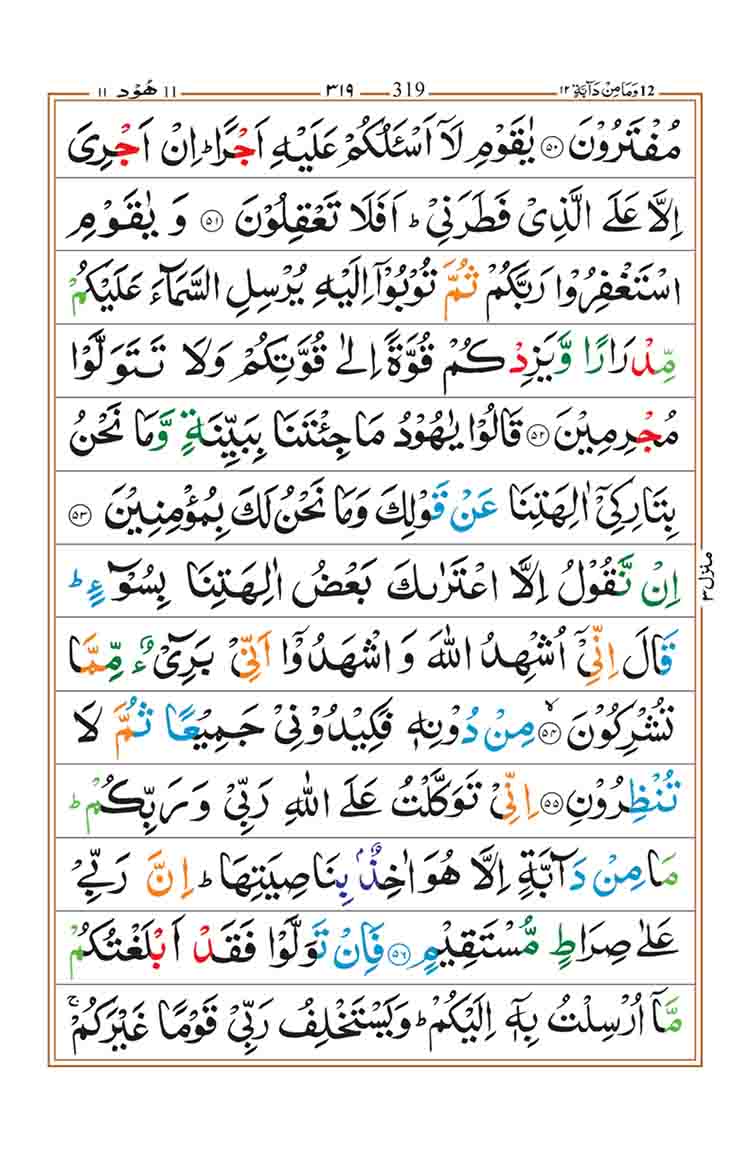 12 وَمَا مِنْ دَآبَّةٍ ١٢ 319 ٣١٩ 11 هُوْد ١١
مُفْتَرُوْنَ ۝٥٠ يٰقَوْمِ لَاۤ اَسْـَٔلُكُمْ عَلَيْهِ اَجْرًا ؕ اِنْ اَجْرِىَ
اِلَّا عَلَى الَّذِىْ فَطَرَنِىْ ؕ اَفَلَا تَعْقِلُوْنَ ۝٥١ وَ يٰقَوْمِ
اسْتَغْفِرُوْا رَبَّكُمْ ثُمَّ تُوْبُوْۤا اِلَيْهِ يُرْسِلِ السَّمَآءَ عَلَيْكُمْ
مِّدْرَارًا وَّيَزِدْكُمْ قُوَّةً اِلٰى قُوَّتِكُمْ وَلَا تَتَوَلَّوْا
مُجْرِمِيْنَ ۝٥٢ قَالُوْا يٰهُوْدُ مَا جِئْتَنَا بِبَيِّنَةٍ وَّمَا نَحْنُ
بِتَارِكِىْۤ اٰلِهَتِنَا عَنْ قَوْلِكَ وَمَا نَحْنُ لَكَ بِمُؤْمِنِيْنَ ۝٥٣
اِنْ نَّقُوْلُ اِلَّا اعْتَرٰٮكَ بَعْضُ اٰلِهَتِنَا بِسُوْٓءٍ ؕ
قَالَ اِنِّىْۤ اُشْهِدُ اللّٰهَ وَ اشْهَدُوْۤا اَنِّىْ بَرِىْٓءٌ مِّمَّا
تُشْرِكُوْنَ ۝٥٤ۙ مِنْ دُوْنِهٖ فَكِيْدُوْنِىْ جَمِيْعًا ثُمَّ لَا
تُنْظِرُوْنِ ۝٥٥ اِنِّىْ تَوَكَّلْتُ عَلَى اللّٰهِ رَبِّىْ وَ رَبِّكُمْ ؕ
مَا مِنْ دَآبَّةٍ اِلَّا هُوَ اٰخِذٌۢ بِنَاصِيَتِهَا ؕ اِنَّ رَبِّىْ
عَلٰى صِرَاطٍ مُّسْتَقِيْمٍ ۝٥٦ فَاِنْ تَوَلَّوْا فَقَدْ اَبْلَغْتُكُمْ
مَّاۤ اُرْسِلْتُ بِهٖۤ اِلَيْكُمْ ؕ وَيَسْتَخْلِفُ رَبِّىْ قَوْمًا غَيْرَكُمْ ۚ
منزل ٣